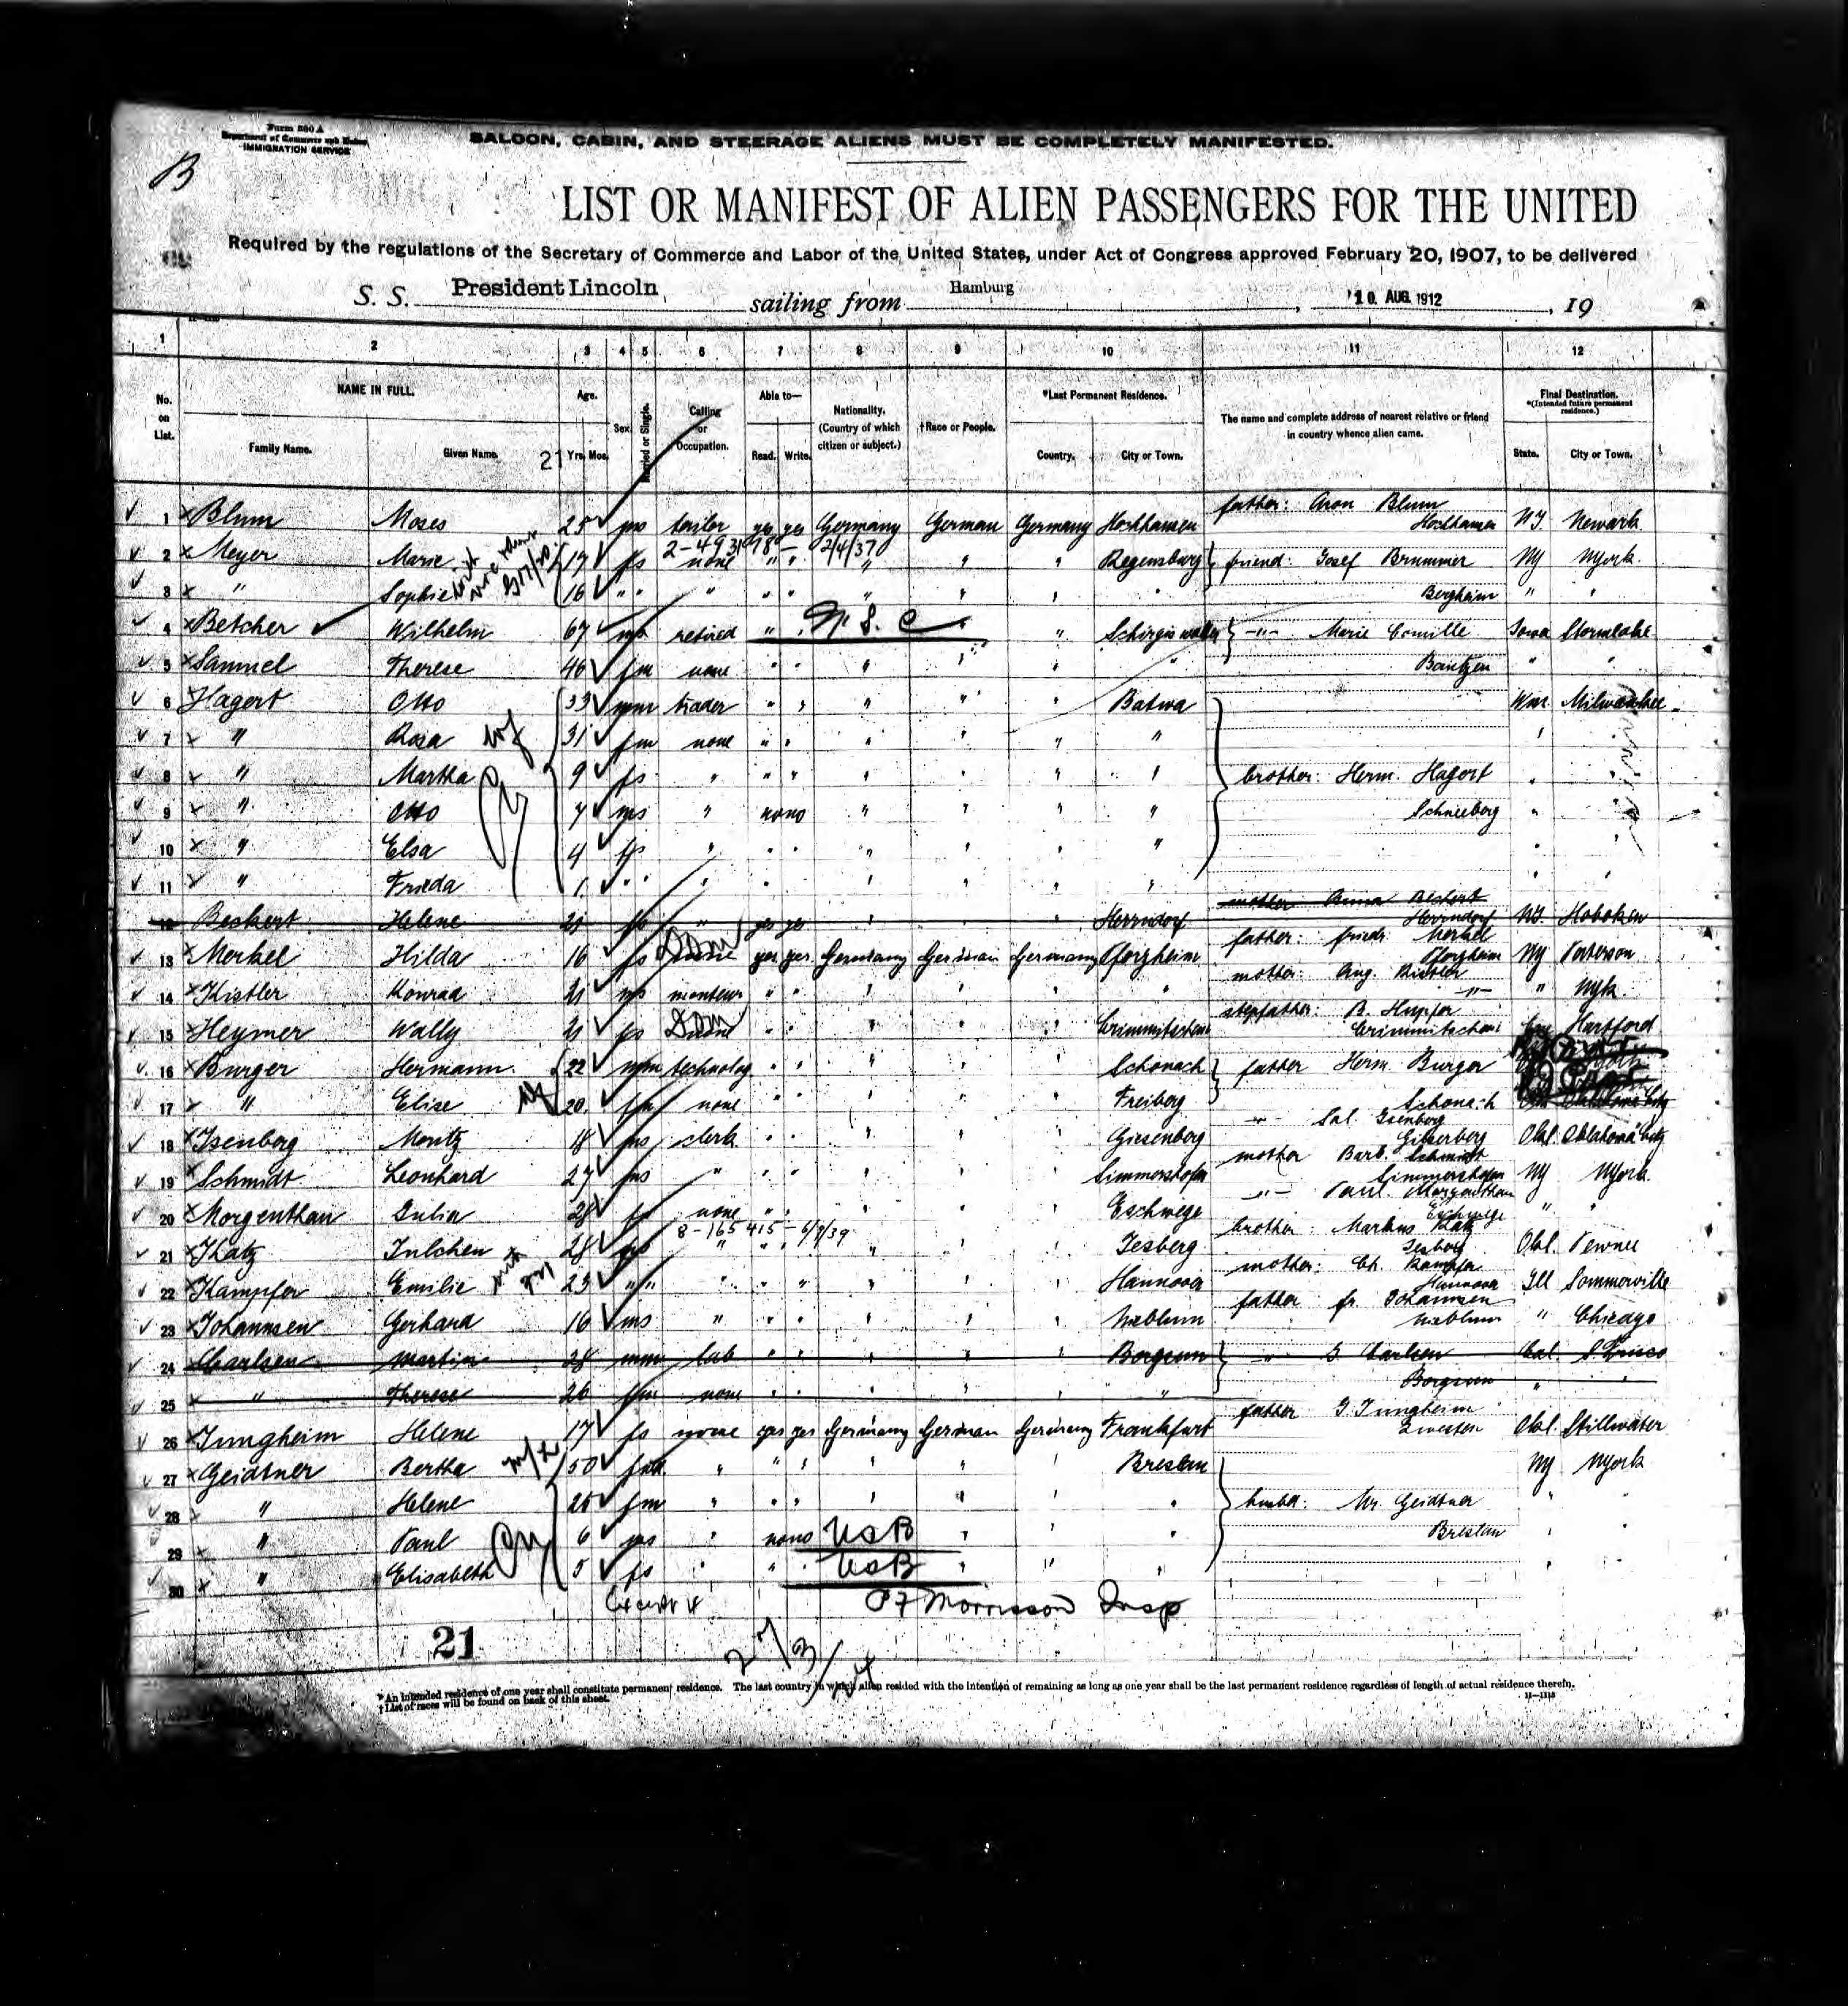 Form 500 A
Department of Commerce and Labor
IMMIGRATION SERVICE
B
SALOON, CABIN, AND STEERAGE ALIENS MUST BE COMPLETELY MANIFESTED.
LIST OR MANIFEST OF ALIEN PASSENGERS FOR THE UNITED
Required by the regulations of the Secretary of Commerce and Labor of the United States, under Act of Congress approved February 20, 1907, to be delivered
S. S. President Lincoln sailing from Hamburg, 10. AUG. 1912, 19
1 2 3 4 5 6 7 8 9 10 11 12
No. on List. NAME IN FULL. Family Name. Given Name. Age. Yrs. Mos. Sex. Married or Single. Calling or Occupation. Able to— Read. Write. Nationality. (Country of which citizen or subject.) †Race or People. *Last Permanent Residence. Country. City or Town. The name and complete address of nearest relative or friend in country whence alien came. Final Destination. *(Intended future permanent residence.) State. City or Town.
21
1 Blum Moses 25 ms tailor yes yes Germany German Germany Hochhausen father: Aron Blum Hochhausen NJ. Newark
2-493178- 2/4/37
2 Meyer Marie 17 fs none " " " " " Regensburg friend: Josef Brummer NY NYork
3 " Sophie 16 " " " " " " " " " Bergheim " "
4 Betcher Wilhelm 67 ms retired " " N. S. C " " friend -"- Marie Camille Iowa Stormlake
5 Samuel Therese 46 fm none " " " " " " Bautzen " "
6 Hagert Otto 33 mm trader " " " " " Batwa Milwaukee
7 " Rosa wf 31 fm none " " " " " "
8 " Martha 9 fs " " " " " " " brother: Herm. Hagert " "
9 " Otto 7 ms " no no " " " " Schneeberg " "
10 " Elsa 4 fs " " " " " " " " "
11 " Frieda 1 " " " " " " " " " "
12 Beckert Helene 21 fs " yes yes " " " Herrndorf mother Anna Beckert Herrndorf NJ. Hoboken
13 Merkel Hilda 16 fs Dom yes yes Germany German Germany Pforzheim father: Friedr. Merkel Pforzheim NY Paterson
14 Kistler Konrad 21 ms monteur " " " " " " mother: Aug. Kistler -"- " NYk.
15 Heymer Wally 21 fs Dom " " " " " Crimmitschau stepfather: B. Hupfer Crimmitschau Hartford
16 Burger Hermann 22 mm technolog " " " " " Schonach father Herm. Burger
17 " Elise 20 fm none " " " " " Freiberg Schonach
18 Isenberg Moritz 18 ms clerk " " " " " Giesenberg -"- Sal. Isenberg Gilserberg Okl. Oklahoma City
19 Schmidt Leonhard 27 ms " " " " " " Simmershofen mother Barb. Schmidt Simmershofen NY NYork
20 Morgenthau Julia 28 fs none " " " " " Eschwege -"- Paul. Morgenthau Eschwege " "
8-165415- 6/9/39
21 Katz Julchen 28 " " " " " " Jesberg brother: Markus Katz Jesberg Okl. Pewnee
22 Kampfer Emilie 23 " " " " " " " " Hannover mother: Ch. Kampfer Hannover Ill Sommerville
23 Johannsen Gerhard 16 ms " " " " " " Nieblum father fr. Johannsen Nieblum " Chicago
24 Carlsen Martin 28 mm lab " " " " " Borgsum -"- G Carlsen Cal. S. Frisco
25 " Therese 26 fm none " " " " " " Borgsum " "
26 Jungheim Helene 17 fs none yes yes Germany German Germany Frankfurt father G Jungheim Zwesten Okl. Stillwater
27 Geidtner Bertha 50 " " " " " " Breslau NY NYork
28 " Helene 25 fm " " " " " " " husbd: Mr. Geidtner " "
29 " Paul 6 ms " no no USB " " " Breslau " "
30 " Elisabeth 5 fs " " " USB " " " " "
P F Morrisson Insp
21
27/3/
*An intended residence of one year shall constitute permanent residence. The last country in which alien resided with the intention of remaining as long as one year shall be the last permanent residence regardless of length of actual residence therein.
†List of races will be found on back of this sheet.